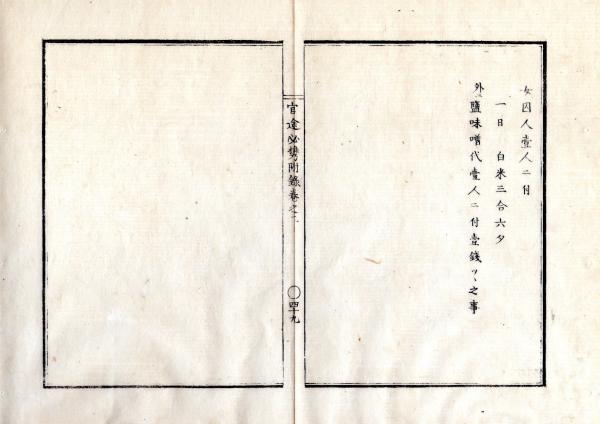 女囚人壹人ニ付
一日 白米三合六夕
外ニ鹽味噌代壹人ニ付壹錢ツヽ之事
官途必携附錄卷之二
四十九